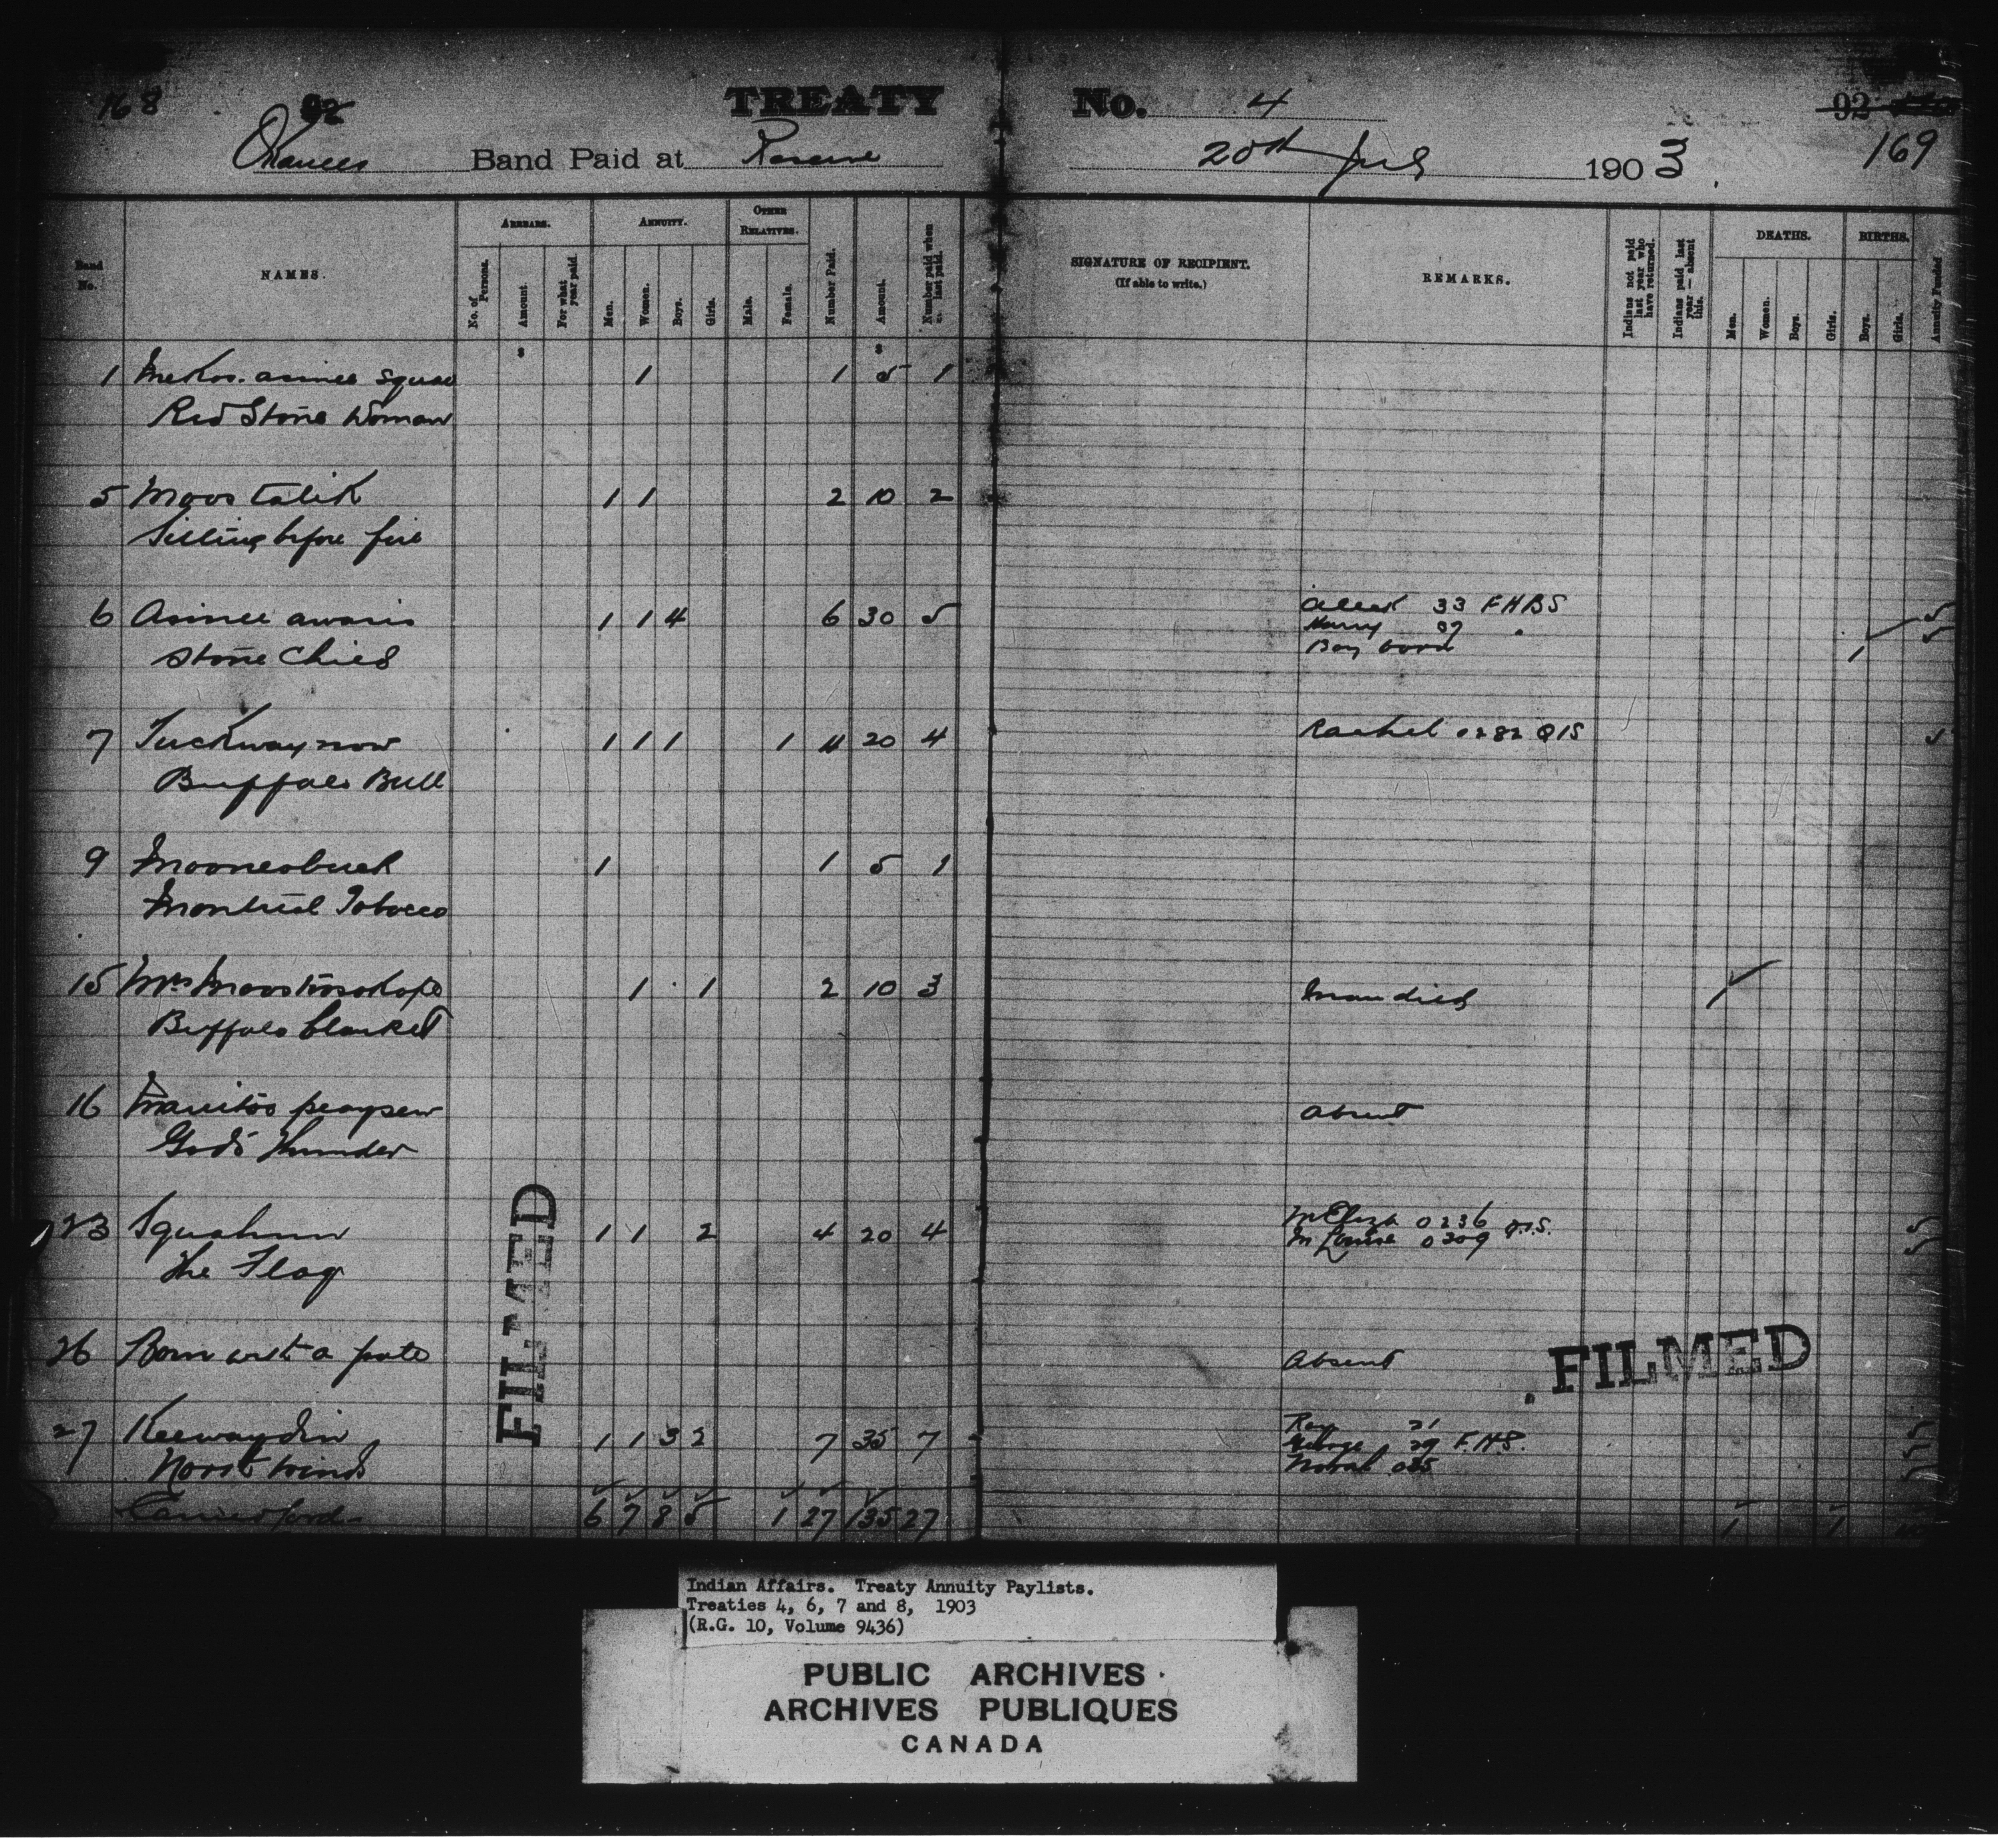 168
92
TREATY No. 4
92
169
Okanees Band Paid at Reserve 20th July 1903
Band No.
NAMES.
ARREARS.
No. of Persons.
Amount
For what year paid.
ANNUITY.
Men.
Women.
Boys.
Girls.
OTHER RELATIVES.
Male.
Female.
Number Paid.
Amount.
Number paid when last paid.
SIGNATURE OF RECIPIENT.
(If able to write.)
REMARKS.
Indians not paid last year who have returned.
Indians paid last year—absent this.
DEATHS.
Men.
Women.
Boys.
Girls.
BIRTHS.
Boys.
Girls.
Annuity Funded
$ $
1 squaw 1 1 5 1
Red Stone Woman
5 Moostatik 1 1 2 10 2
Sitting before fire
6 Asinee awasis 1 1 4 6 30 5 33 FHBS 5
Stone Child Harry 5
Boy born 1
7 Tuckwaynow 1 1 1 1 4 20 4 Rachel 0282 QIS 5
Buffalo Bull
9 1 1 5 1
Montreal Tobacco
15 Mrs 1 1 2 10 3 Man died 1
Buffalo blanket
16 Manitoo peaysew Absent
God's Thunder
23 Squahum 1 1 2 4 20 4 M Eliza 0236 QIS. 5
The Flag M Louise 0309 5
26 Born with a pate Absent
27 Keewaydin 1 1 3 2 7 35 7 Roy 21 5
North Wind George 29 F.H.S. 5
5
Carried ford 6 7 8 5 1 27 135 27 1 1
FILMED
FILMED
Indian Affairs. Treaty Annuity Paylists.
Treaties 4, 6, 7 and 8, 1903
(R.G. 10, Volume 9436)
PUBLIC ARCHIVES
ARCHIVES PUBLIQUES
CANADA